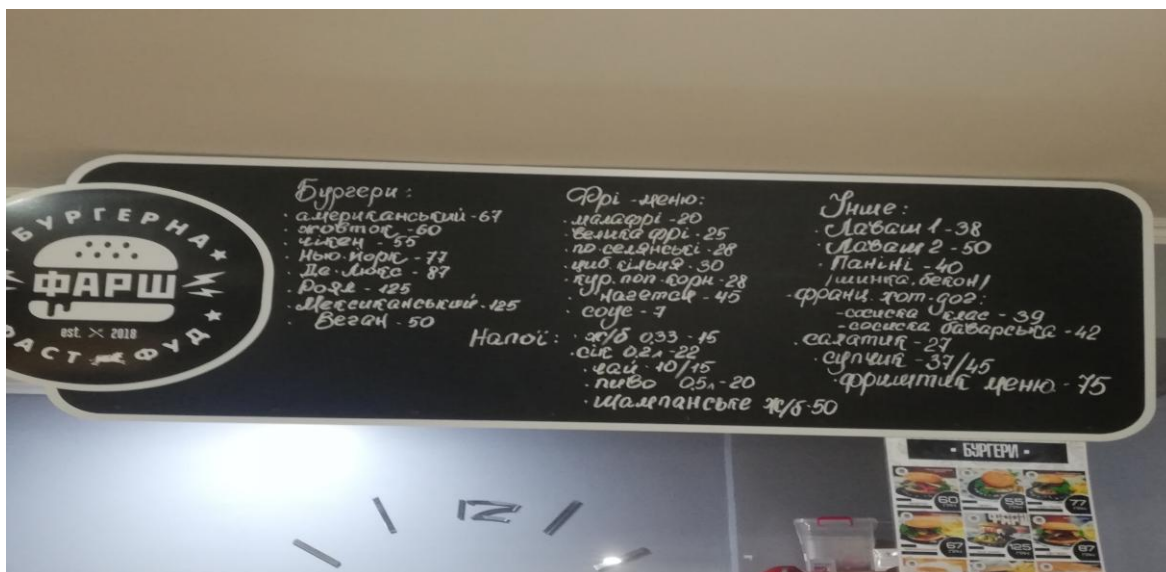 БУРГЕРНА
ФАРШ
est. 2018
ФАСТ ФУД
Бургери:
· американський - 67
· жовток - 60
· чікен - 55
· Нью-Йорк - 77
· Де Люкс - 87
· Роял - 125
· Мексиканський - 125
· Веган - 50
Фрі - меню:
· мала фрі - 20
· велика фрі - 25
· по селянські - 28
· циб. кільця - 30
· кур. поп-корн - 28
· нагетси - 45
· соус - 7
Напої:
· ж/б 0,33 - 15
· сік 0,2л - 22
· чай - 10/15
· пиво 0,5л - 20
· шампанське ж/б - 50
Інше:
· Лаваш 1 - 38
· Лаваш 2 - 50
· Паніні - 40
/шинка, бекон/
· франц. хот-дог:
- сосиска клас - 39
- сосиска баварська - 42
· салатик - 27
· супчик - 37/45
· фриштик меню - 75
· БУРГЕРИ ·
60
55
77
67
125
87
12